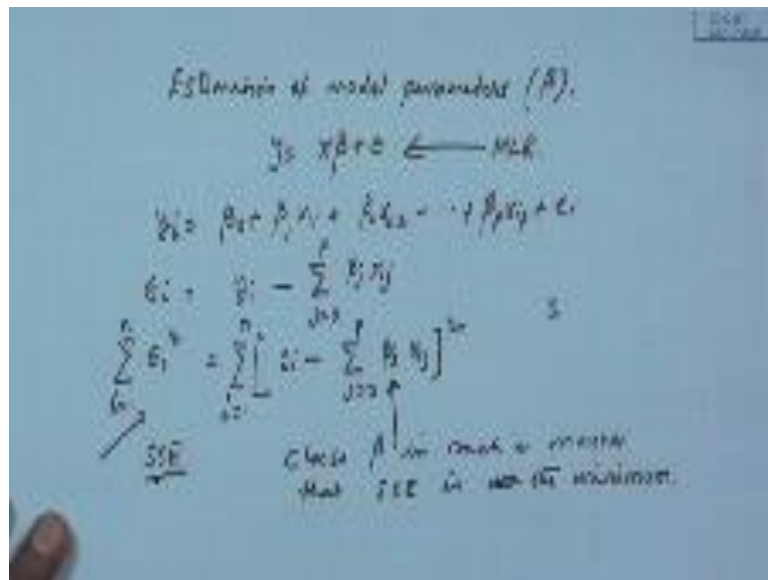 Estimation of model parameters (β).
y = xβ + ε ← MLR
yi = β0 + β1 xi1 + β2 xi2 + ··· + βp xip + εi
εi = yi − ∑_{j=0}^{p} βj xij
∑_{i=1}^{n} εi² = ∑_{i=1}^{n} [ yi − ∑_{j=0}^{p} βj xij ]²
SSE
Choose β in such a manner
that SSE is the minimum.